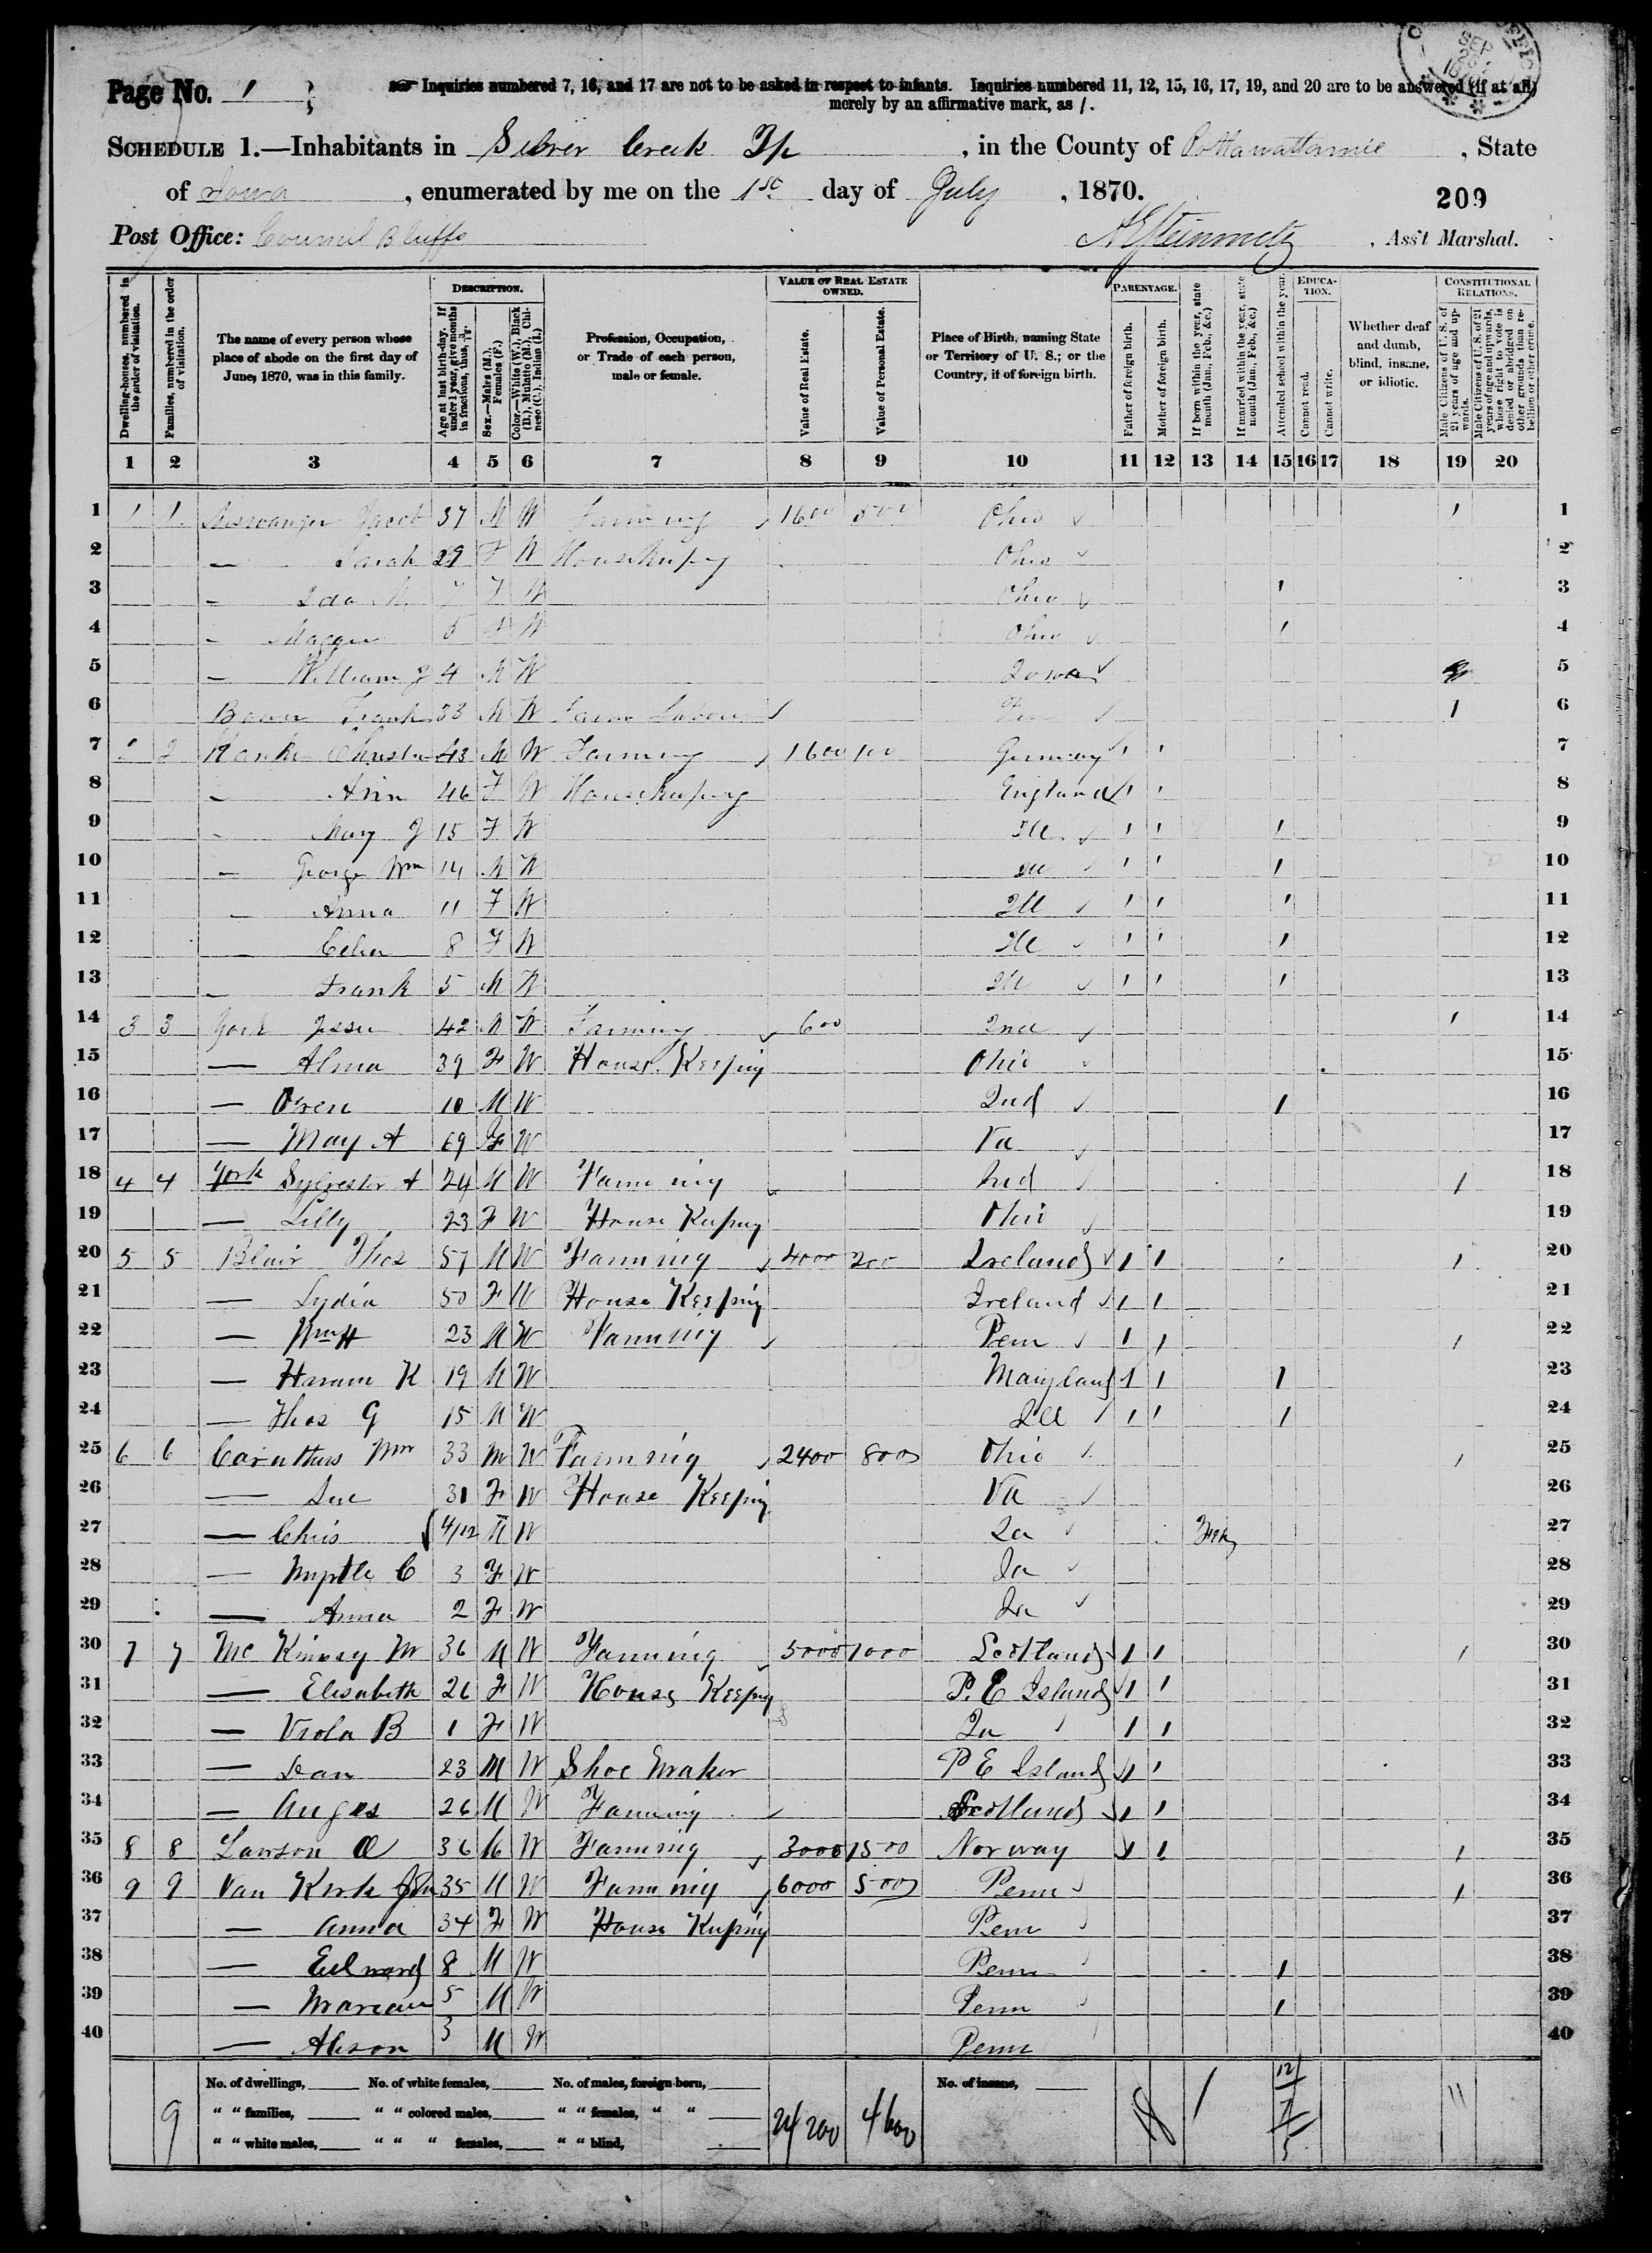 Page No. 1
Inquiries numbered 7, 16, and 17 are not to be asked in respect to infants. Inquiries numbered 11, 12, 15, 16, 17, 19, and 20 are to be answered (if at all)
merely by an affirmative mark, as /.
SCHEDULE 1.—Inhabitants in Silver Creek Tp, in the County of Pottawattamie, State
of Iowa, enumerated by me on the 1st day of July, 1870.
209
Post Office: Council Bluffs
Steinmetz, Ass't Marshal.
Dwelling-houses, numbered in the order of visitation.
Families, numbered in the order of visitation.
The name of every person whose place of abode on the first day of June, 1870, was in this family.
DESCRIPTION.
Age at last birth-day. If under 1 year, give months in fractions, thus, 3/12.
Sex.—Males (M.), Females (F.)
Color.—White (W.), Black (B.), Mulatto (M.), Chinese (C.), Indian (I.)
Profession, Occupation, or Trade of each person, male or female.
VALUE OF REAL ESTATE OWNED.
Value of Real Estate.
Value of Personal Estate.
Place of Birth, naming State or Territory of U. S.; or the Country, if of foreign birth.
PARENTAGE.
Father of foreign birth.
Mother of foreign birth.
If born within the year, state month (Jan., Feb., &c.)
If married within the year, state month (Jan., Feb., &c.)
Attended school within the year.
EDUCATION.
Cannot read.
Cannot write.
Whether deaf and dumb, blind, insane, or idiotic.
CONSTITUTIONAL RELATIONS.
Male Citizens of U. S. of 21 years of age and upwards.
Male Citizens of U. S. of 21 years of age and upwards, whose right to vote is denied or abridged on other grounds than rebellion or other crime.
1 2 3 4 5 6 7 8 9 10 11 12 13 14 15 16 17 18 19 20
1 1 1 Jacob 37 M W Farming 1600 500 Ohio / 1
2 — Sarah 29 F W Housekeeping Ohio 2
3 — Ida M. 7 F W Ohio / 3
4 — Maggie 5 F W Ohio / 4
5 — William J 4 M W Iowa 5
6 Frank 33 M W Farm Labor / 6
7 2 2 43 M W Farming 1600 100 Germany / / 7
8 — Ann 46 F W Housekeeping England / / 8
9 — Mary J 15 F W Ill / / / 9
10 — George Wm 14 M W Ill / / / 10
11 — Anna 11 F W Ill / / / 11
12 — Celia 8 F W Ill / / / 12
13 — Frank 5 M W Ill / / / 13
14 3 3 York Jesse 42 M W Farming 600 Ind / 14
15 — Alma 39 F W House Keeping Ohio 15
16 — Oren 10 M W Ind / 16
17 — Mary A 69 F W Va 17
18 4 4 York Sylvester A 24 M W Farming Ind / 18
19 — Lilly 23 F W House Keeping Ohio 19
20 5 5 Blair Thos 57 M W Farming 4000 200 Ireland / / / 20
21 — Lydia 50 F W House Keeping Ireland / / 21
22 — Wm H 23 M W Farming Penn / / / 22
23 — Haram K 19 M W Maryland / / / 23
24 — Thos G 15 M W Ill / / / 24
25 6 6 Caruthers Wm 33 M W Farming 2400 800 Ohio / 25
26 — Sue 31 F W House Keeping Va 26
27 — Chris 4/12 M W Ia Feb 27
28 — Myrtle C 3 F W Ia 28
29 — Anna 2 F W Ia 29
30 7 7 Mc Kinsey M 36 M W Farming 5000 1000 Scotland / / / 30
31 — Elisabeth 26 F W House Keeping P. E Island / / 31
32 — Viola B 1 F W Ia / / 32
33 — Dan 23 M W Shoe Maker P E Island / / 33
34 — Anges 26 M W Farming Scotland / / 34
35 8 8 Lawson O 36 M W Farming 3000 1500 Norway / / / 35
36 9 9 Van Kirk John 35 M W Farming 6000 500 Penn / 36
37 — Anna 34 F W House Keeping Penn 37
38 — Edward 8 M W Penn / 38
39 — 5 M W Penn / 39
40 — Alison 3 M W Penn 40
No. of dwellings, No. of white females, No. of males, foreign born, No. of insane,
" " families, " " colored males, " " females, " "
" " white males, " " " females, " " blind,
9 24200 4600 18 1 12/7/5 11